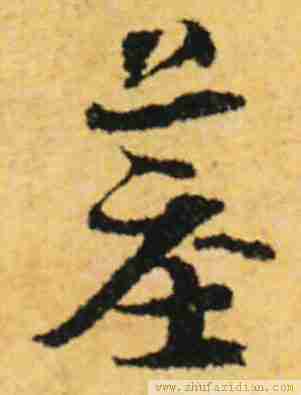 墓
www.zhufaridian.com